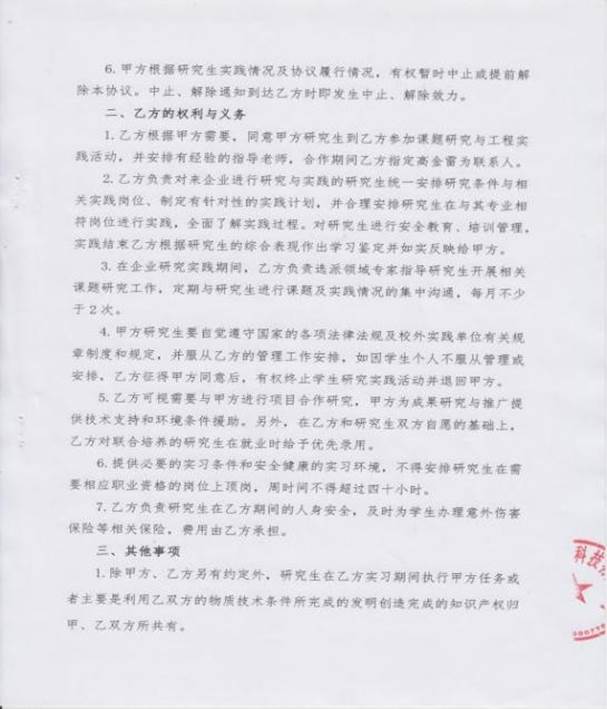 6.甲方根据研究生实践情况及协议履行情况，有权暂时中止或提前解
除本协议。中止、解除通知到达乙方时即发生中止、解除效力。
二、乙方的权利与义务
1.乙方根据甲方需要，同意甲方研究生到乙方参加课题研究与工程实
践活动，并安排有经验的指导老师，合作期间乙方指定高金雷为联系人。
2.乙方负责对来企业进行研究与实践的研究生统一安排研究条件与相
关实践岗位、制定有针对性的实践计划，并合理安排研究生在与其专业相
符岗位进行实践，全面了解实践过程。对研究生进行安全教育、培训管理，
实践结束乙方根据研究生的综合表现作出学习鉴定并如实反映给甲方。
3.在企业研究实践期间，乙方负责选派领域专家指导研究生开展相关
课题研究工作，定期与研究生进行课题及实践情况的集中沟通，每月不少
于2次。
4.甲方研究生要自觉遵守国家的各项法律法规及校外实践单位有关规
章制度和规定，并服从乙方的管理工作安排，如因学生个人不服从管理或
安排，乙方征得甲方同意后，有权终止学生研究实践活动并退回甲方。
5.乙方可视需要与甲方进行项目合作研究，甲方为成果研究与推广提
供技术支持和环境条件援助。另外，在乙方和研究生双方自愿的基础上，
乙方对联合培养的研究生在就业时给予优先录用。
6.提供必要的实习条件和安全健康的实习环境，不得安排研究生在需
要相应职业资格的岗位上顶岗，周时间不得超过四十小时。
7.乙方负责研究生在乙方期间的人身安全，及时为学生办理意外伤害
保险等相关保险，费用由乙方承担。
三、其他事项
1.除甲方、乙方另有约定外，研究生在乙方实习期间执行甲方任务或
者主要是利用乙双方的物质技术条件所完成的发明创造完成的知识产权归
甲、乙双方所共有。
科技